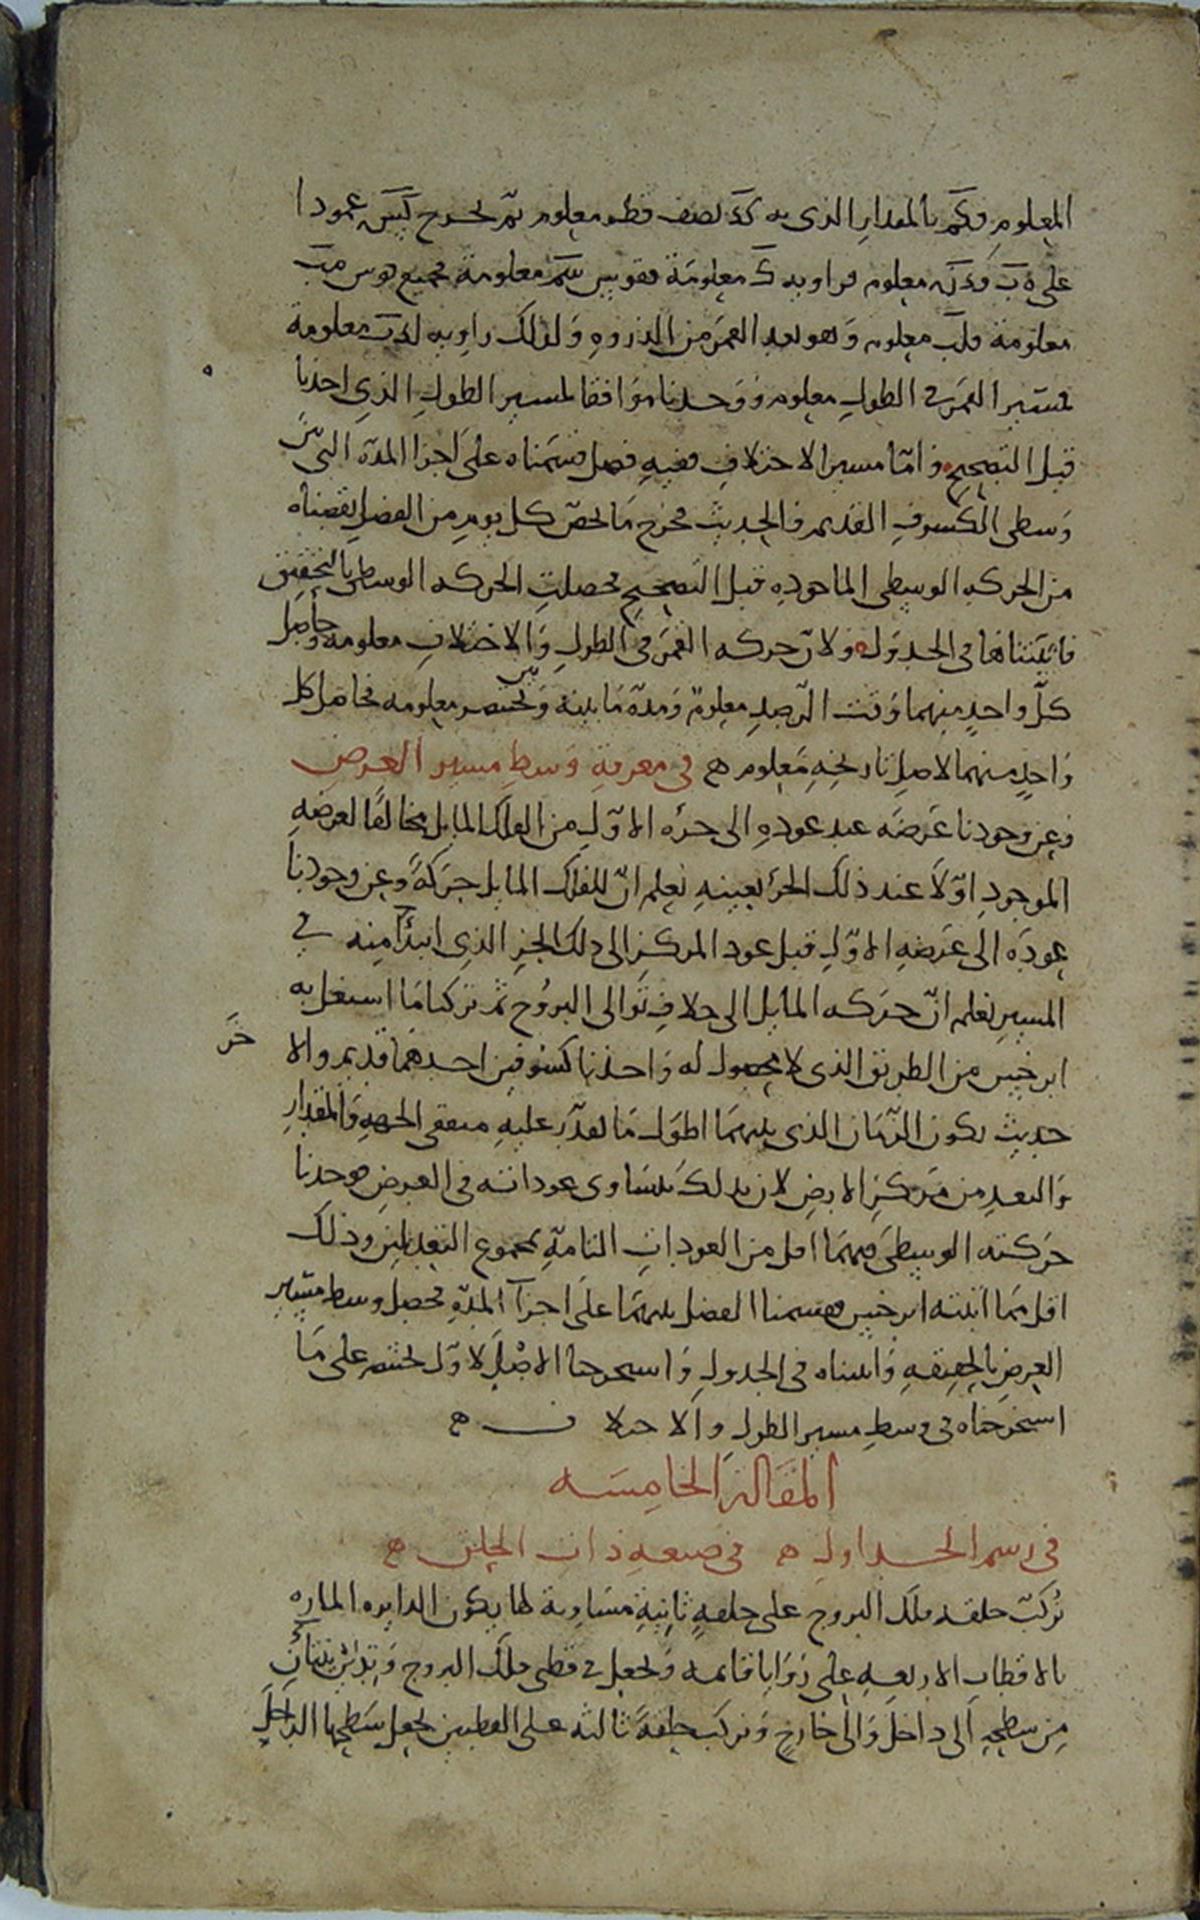 المعلوم فكم بالمقدار الذى به كه نصف قطر معلوم ثم نخرج كس عمودا
على معلوم فزاوية معلومة فقوس معلومة فجميع قوس
معلومة معلوم وهو بعد القمر من الذروه وكذلك زاويه معلومة
فمسير القمر فى الطول معلوم ووجدناه موافقا لمسير الطول الذى اخذنا
قبل التصحيح واما مسير الاختلاف ففيه فضل قسمناه على اجزا المدة التى بين
وسطى الكسوف القديم والحديث فخرج ما يخص كل يوم من الفضل نقصناه
من الحركه الوسطى الماخوده قبل التصحيح فحصلت الحركه الوسطى بالتحقيق
فاثبتناها فى الجدول ولان حركه القمر فى الطول والاختلاف معلومه وحاصل
كل واحد منهما وقت الرصد معلوم ومدة ما بينه وبين بختنصر معلومه فحاصل كل
واحد منهما لاصل تاريخه معلوم ه فى معرفة وسط مسير العرض
وعن وجودنا عرضه عند عوده الى جزه الاول من الفلك المايل مخالفا لعرضه
الموجود اولا عند ذلك الجزء بعينه نعلم ان للفلك المايل حركة وعن وجودنا
عوده الى عرضه الاول قبل عود المركز الى ذلك الجز الذى ابتدا منه فى
المسير نعلم ان حركه المايل الى خلاف توالى البروج ثم تركنا ما استعمل به
ابرخس من الطريق الذى لا محصول له واخذنا كسوفين احدهما قديم والاخر
حديث يكون الزمان الذى بينهما اطول ما نقدر عليه متفقى الجهة والمقدار
والبعد من مركز الارض لان بذلك يتساوى عوداته فى العرض فوجدنا
حركته الوسطى فيهما اقل من العودات التامة بمجموع التعديلين وذلك
اقل مما اثبته ابرخس فقسمنا الفضل بينهما على اجزآ المدة فحصل وسط مسير
العرض بالحقيقه واثبتناه فى الجدول واستخرجنا الاصل لاول بختنصر على ما
استخرجناه فى وسط مسير الطول والاختلاف ه
المقالة الخامسه
فى رسم الجداول ه فى صنعه ذات الحلق ه
نركب حلقه فلك البروج على حلقه ثانية مساوية لها يكون الدايره الماره
بالاقطاب الاربعه على زوايا قايمه ونجعل فى قطبى فلك البروج وتدين ينتان
من سطحه الى داخل والى خارج ونركب حلقة ثالثه على القطبين نجعل سطحها الداخل